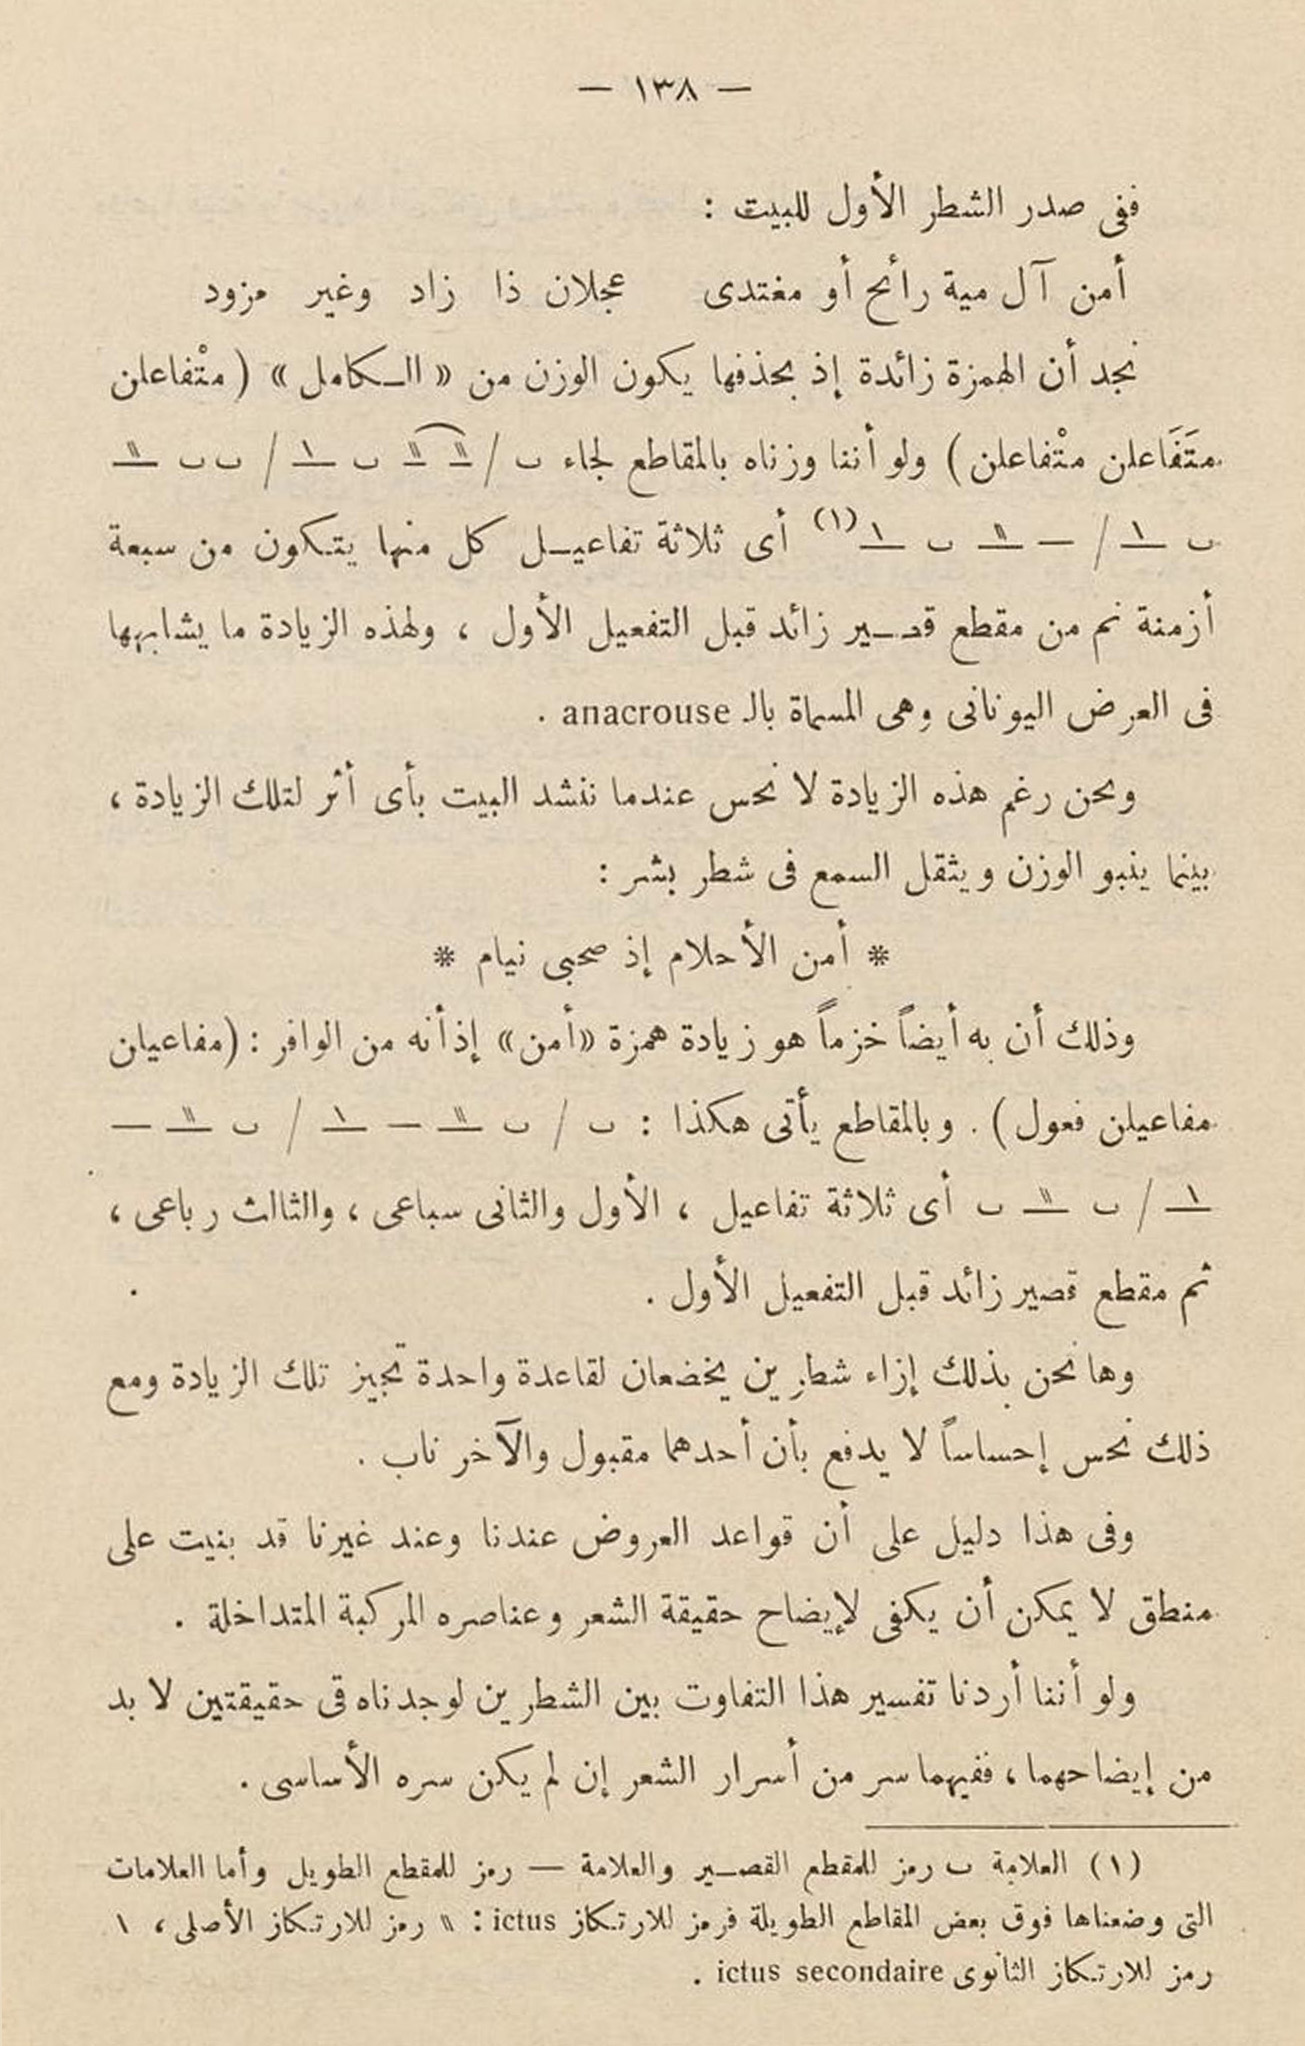 — ١٣٨ —
ففى صدر الشطر الأول للبيت :
أمن آل مية رائح أو مغتدى عجلان ذا زاد وغير مزود
نجد أن الهمزة زائدة إذ بحذفها يكون الوزن من « الكامل » ( متْفاعلن
متَفَاعلن متْفاعلن ) ولو أننا وزناه بالمقاطع لجاء ں / — — ں — / ں ں —
ں — / — — ں — (١) أى ثلاثة تفاعيل كل منها يتكون من سبعة
أزمنة نم من مقطع قصير زائد قبل التفعيل الأول ، ولهذه الزيادة ما يشابهها
فى العرض اليونانى وهى المسماة بالـ anacrouse .
ونحن رغم هذه الزيادة لا نحس عندما ننشد البيت بأى أثر لتلك الزيادة ،
بينما ينبو الوزن ويثقل السمع فى شطر بشر :
* أمن الأحلام إذ صحبى نيام *
وذلك أن به أيضاً خزماً هو زيادة همزة « أمن » إذ أنه من الوافر : ( مفاعيان
مفاعيلن فعول ) . وبالمقاطع يأتى هكذا : ں / ں — — — / ں — —
— / ں — ں أى ثلاثة تفاعيل ، الأول والثانى سباعى ، والثالث رباعى ،
ثم مقطع قصير زائد قبل التفعيل الأول .
وها نحن بذلك إزاء شطرين يخضعان لقاعدة واحدة تجيز تلك الزيادة ومع
ذلك نحس إحساساً لا يدفع بأن أحدهما مقبول والآخر ناب .
وفى هذا دليل على أن قواعد العروض عندنا وعند غيرنا قد بنيت على
منطق لا يمكن أن يكفى لإيضاح حقيقة الشعر وعناصره المركبة المتداخلة .
ولو أننا أردنا تفسير هذا التفاوت بين الشطرين لوجدناه قى حقيقتين لا بد
من إيضاحهما ، ففيهما سر من أسرار الشعر إن لم يكن سره الأساسى .
( ١ ) العلامة ں رمز للمقطع القصير والعلامة — رمز للمقطع الطويل وأما العلامات
التى وضعناها فوق بعض المقاطع الطويلة فرمز للارتكاز ictus : \\ رمز للارتكاز الأصلى ، \
رمز للارتكاز الثانوى ictus secondaire .